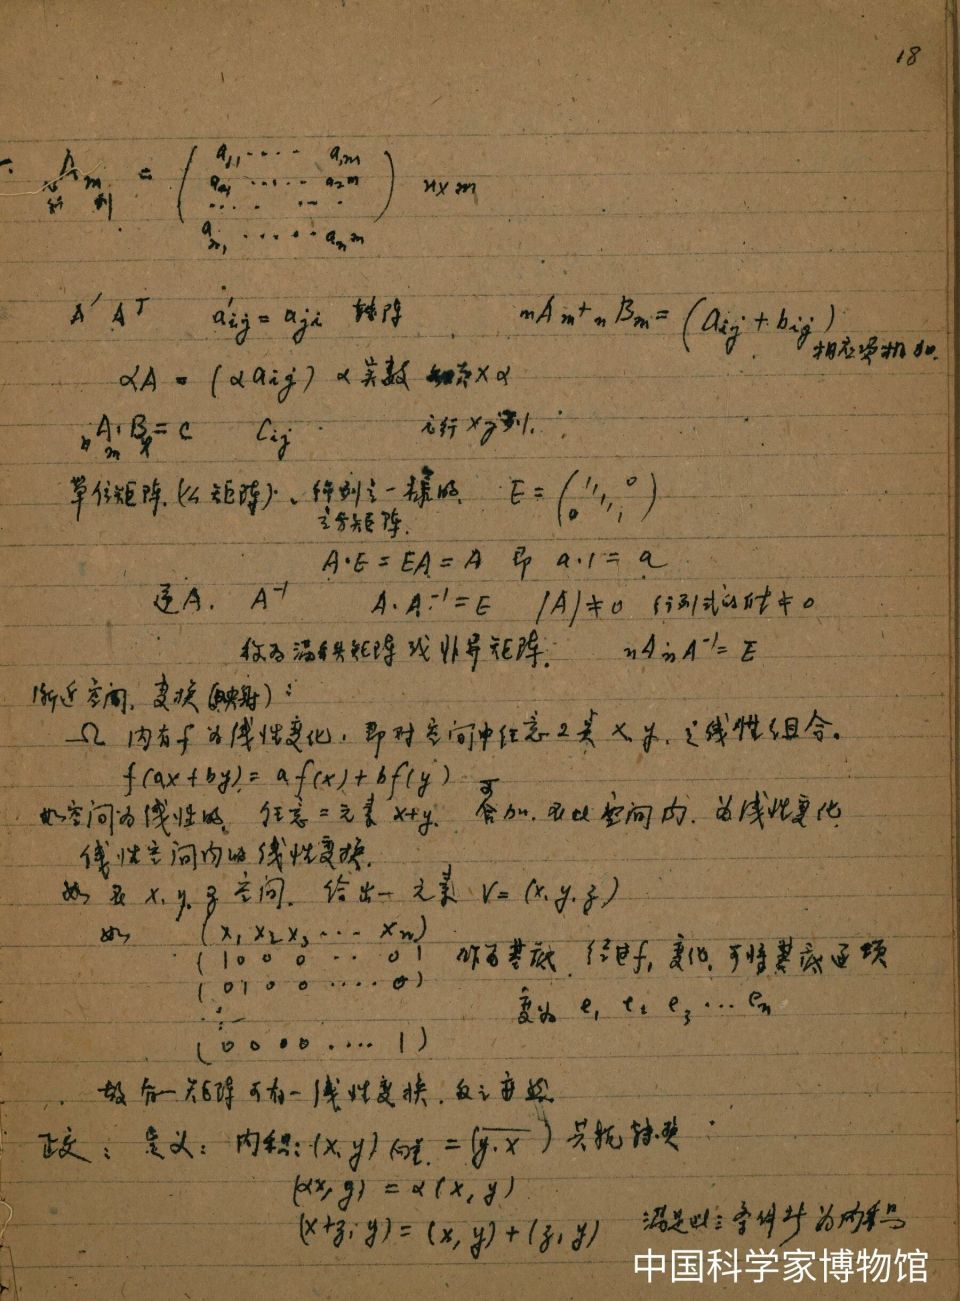 18
ₙAₘ = ( a₁₁ ···· a₁ₘ
a₂₁ ······ a₂ₘ
···· ····
aₙ₁ ······ aₙₘ ) n×m
行 列
A′ Aᵀ a′ij = aji 转阵 ₙAₘ + ₙBₘ = (aij + bij)
相应项相加.
αA = (αaij) α实数 ×α
A·B = C Cij i行×j列.
单位矩阵.(么矩阵). 行列之一样的. E = ( 1 1 0
0 1 )
方矩阵.
A·E = EA = A 即 a·1 = a
逆A. A⁻¹ A·A⁻¹ = E |A| ≠ 0 行列式 ≠ 0
称为满秩矩阵或非异矩阵. ₙAₙA⁻¹ = E
空间. 变换(映射):
Ω 内有f为线性变化. 即对空间中任意2类 x, y, 之线性组合.
f(ax+by) = af(x) + bf(y)
如空间为线性的. 任意二元素 x+y. 空间内. 为线性变化
线性空间内的线性变换.
如 x, y, z 空间. 给出一元素 V = (x, y, z)
如 (x₁ x₂ x₃ ··· xₙ)
(1 0 0 0 ·· 0) 作为基底. 经过f, 变化, 可将基底逐项
(0 1 0 0 ···· 0)
变为 e₁ e₂ e₃ ··· eₙ
(0 0 0 0 ···· 1)
故有一矩阵可有一线性变换. 反之亦然
正交: 定义: 内积: (x, y) = (y, x) 共轭转换
(αx, y) = α(x, y)
(x+z, y) = (x, y) + (z, y) 满足此三条件时为内积
中国科学家博物馆